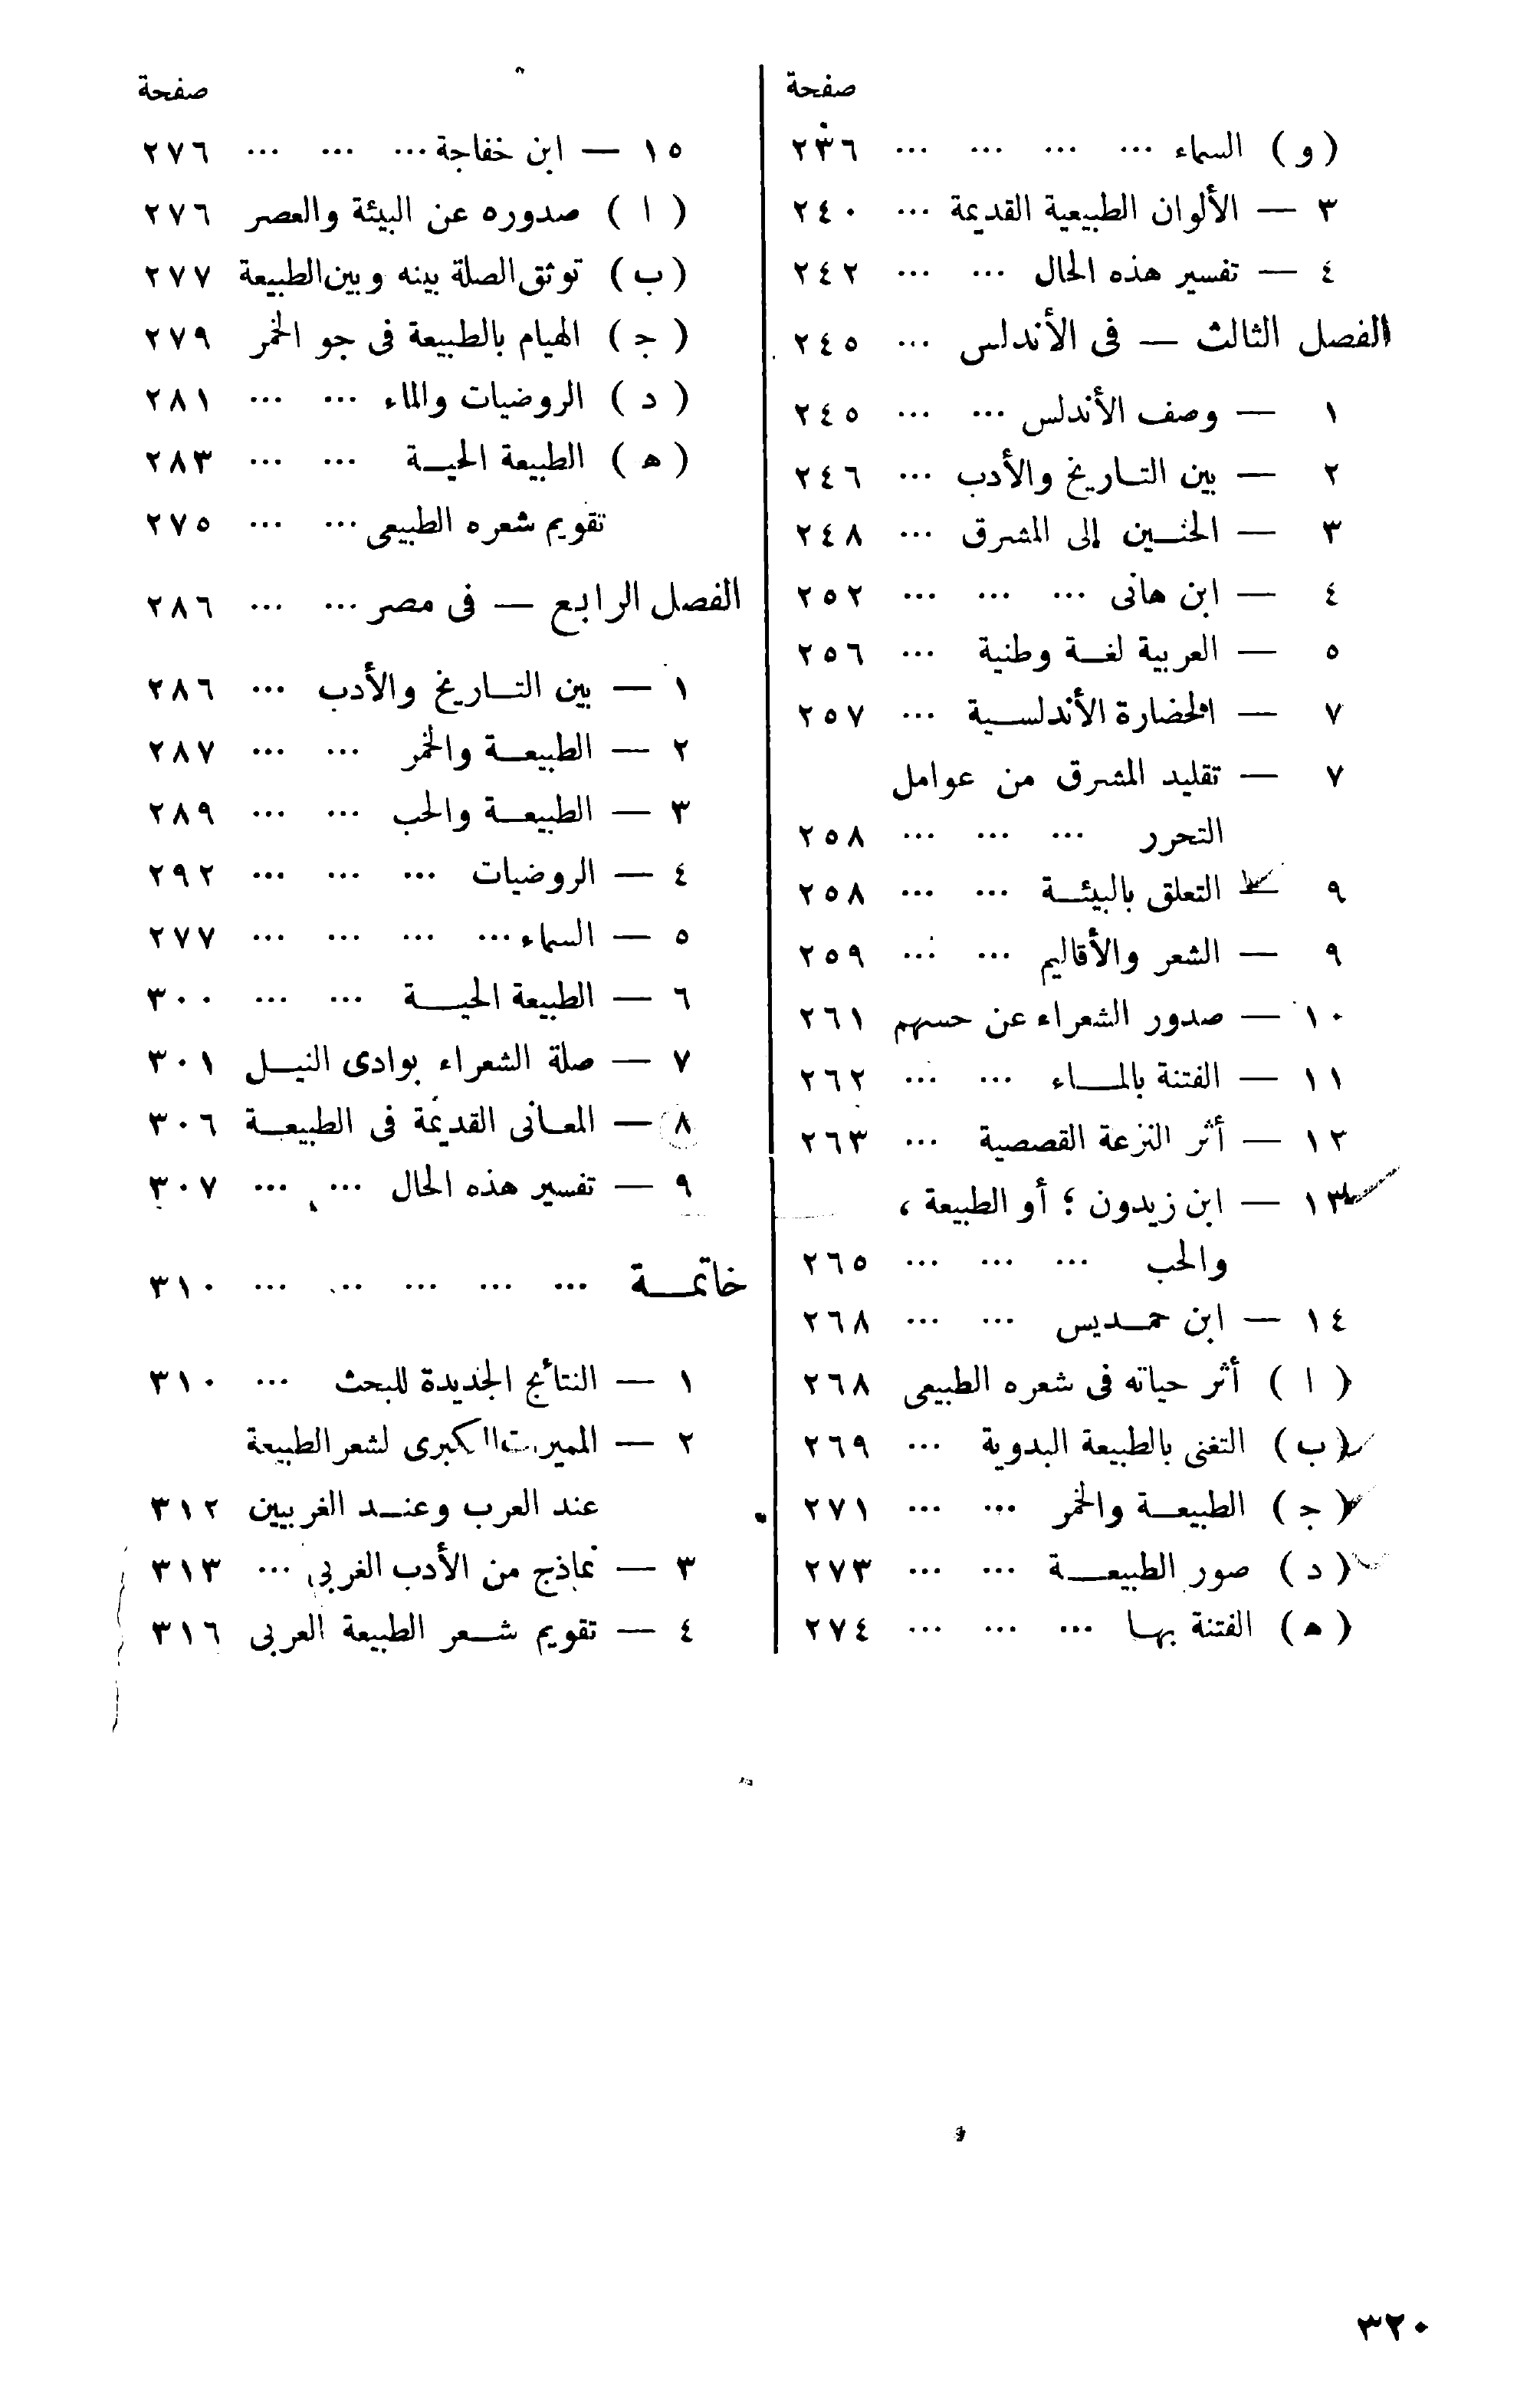 صفحة
(و) السماء ... ... ... ... ٢٣٦
٣ — الألوان الطبيعية القديمة ... ٢٤٠
٤ — تفسير هذه الحال ... ... ٢٤٢
الفصل الثالث — فى الأندلس ... ٢٤٥
١ — وصف الأندلس ... ... ٢٤٥
٢ — بين التاريخ والأدب ... ٢٤٦
٣ — الحنين إلى المشرق ... ٢٤٨
٤ — ابن هانى ... ... ... ٢٥٢
٥ — العربية لغة وطنية ... ٢٥٦
٧ — الحضارة الأندلسية ... ٢٥٧
٧ — تقليد المشرق من عوامل
التحرر ... ... ... ٢٥٨
٩ — التعلق بالبيئة ... ... ٢٥٨
٩ — الشعر والأقاليم ... ... ٢٥٩
١٠ — صدور الشعراء عن حسهم ٢٦١
١١ — الفتنة بالماء ... ... ٢٦٢
١٢ — أثر النزعة القصصية ... ٢٦٣
١٣ — ابن زيدون ؛ أو الطبيعة ،
والحب ... ... ... ٢٦٥
١٤ — ابن حمديس ... ... ٢٦٨
(ا) أثر حياته فى شعره الطبيعى ٢٦٨
(ب) التغنى بالطبيعة البدوية ... ٢٦٩
(ج) الطبيعة والخمر ... ... ٢٧١
(د) صور الطبيعة ... ... ٢٧٣
(ه) الفتنة بها ... ... ... ٢٧٤
صفحة
١٥ — ابن خفاجة ... ... ... ٢٧٦
(ا) صدوره عن البيئة والعصر ٢٧٦
(ب) توثق الصلة بينه وبين الطبيعة ٢٧٧
(ج) الهيام بالطبيعة فى جو الخمر ٢٧٩
(د) الروضيات والماء ... ... ٢٨١
(ه) الطبيعة الحية ... ... ٢٨٣
تقويم شعره الطبيعى ... ... ٢٧٥
الفصل الرابع — فى مصر ... ... ٢٨٦
١ — بين التاريخ والأدب ... ٢٨٦
٢ — الطبيعة والخمر ... ... ٢٨٧
٣ — الطبيعة والحب ... ... ٢٨٩
٤ — الروضيات ... ... ... ٢٩٢
٥ — السماء ... ... ... ... ٢٧٧
٦ — الطبيعة الحية ... ... ٣٠٠
٧ — صلة الشعراء بوادى النيل ٣٠١
٨ — المعانى القديمة فى الطبيعة ٣٠٦
٩ — تفسير هذه الحال ... ... ٣٠٧
خاتمة ... ... ... ... ... ٣١٠
١ — النتائج الجديدة للبحث ... ٣١٠
٢ — الكبرى لشعر الطبيعة
عند العرب وعند الغربيين ٣١٢
٣ — نماذج من الأدب الغربى ... ٣١٣
٤ — تقويم شعر الطبيعة العربى ٣١٦
٣٢٠